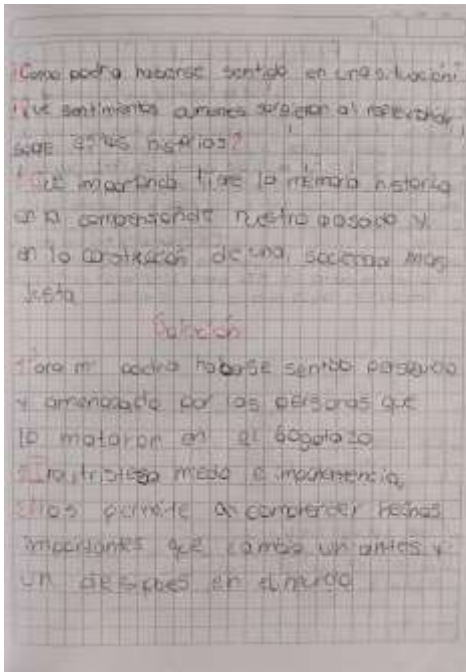 ¿Como podria haberse sentido en una situación?
¿Que sentimientos comunes surgieron al reflexionar
sobre estas historias?
¿Que importancia tiene la memoria historica
en la compensión de nuestro pasado y
en la construcción de una sociedad mas
justa
Solución
Para mi podria haberse sentido perseguido
y amenasado por las personas que
lo mataron en el bogotazo
Ira, tristesa miedo e
Nos permite a comprender hechos
importantes que cambia un antes y
un despues en el mundo